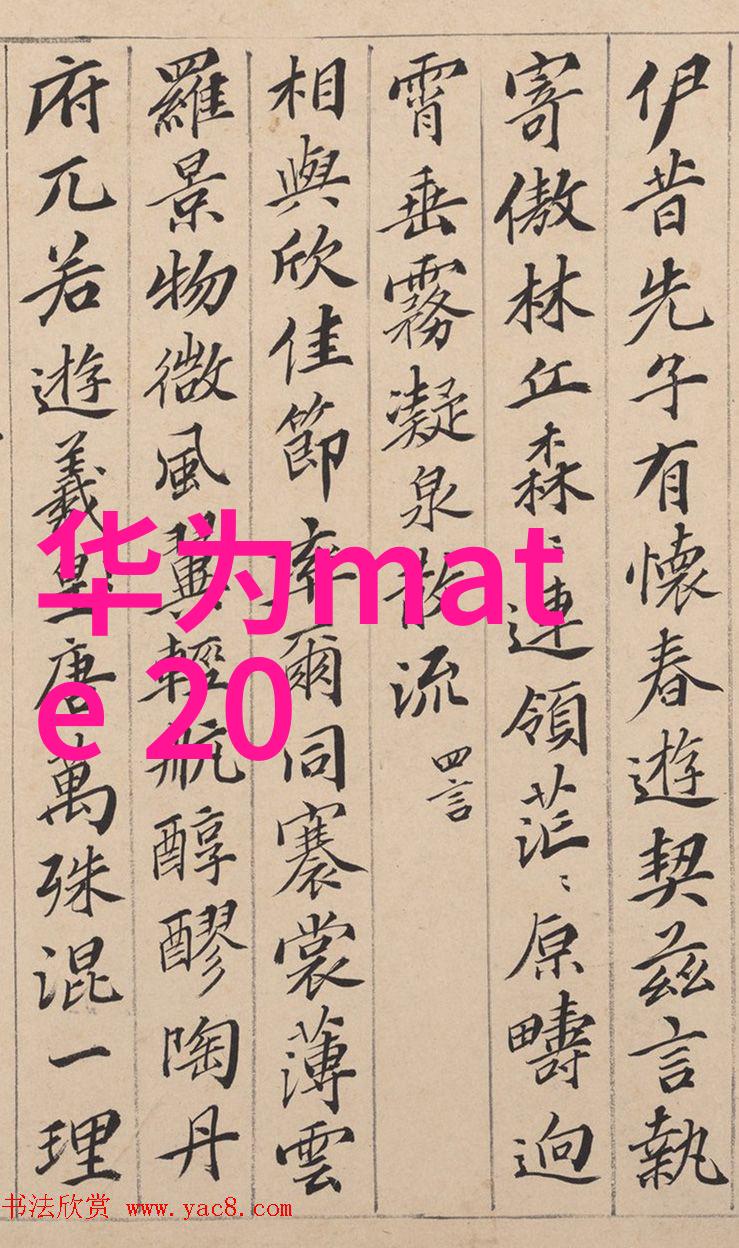 伊昔先子有懷春遊契茲言執
寄傲林丘森〻連領茫〻原疇迥
霄垂霧凝泉散流 四言
相與欣佳節率爾同褰裳薄雲
羅景物微風翼輕航醇醪陶丹
府兀若遊羲皇唐萬殊混一理
华为mat
e 20
书法欣赏 www.yac8.com